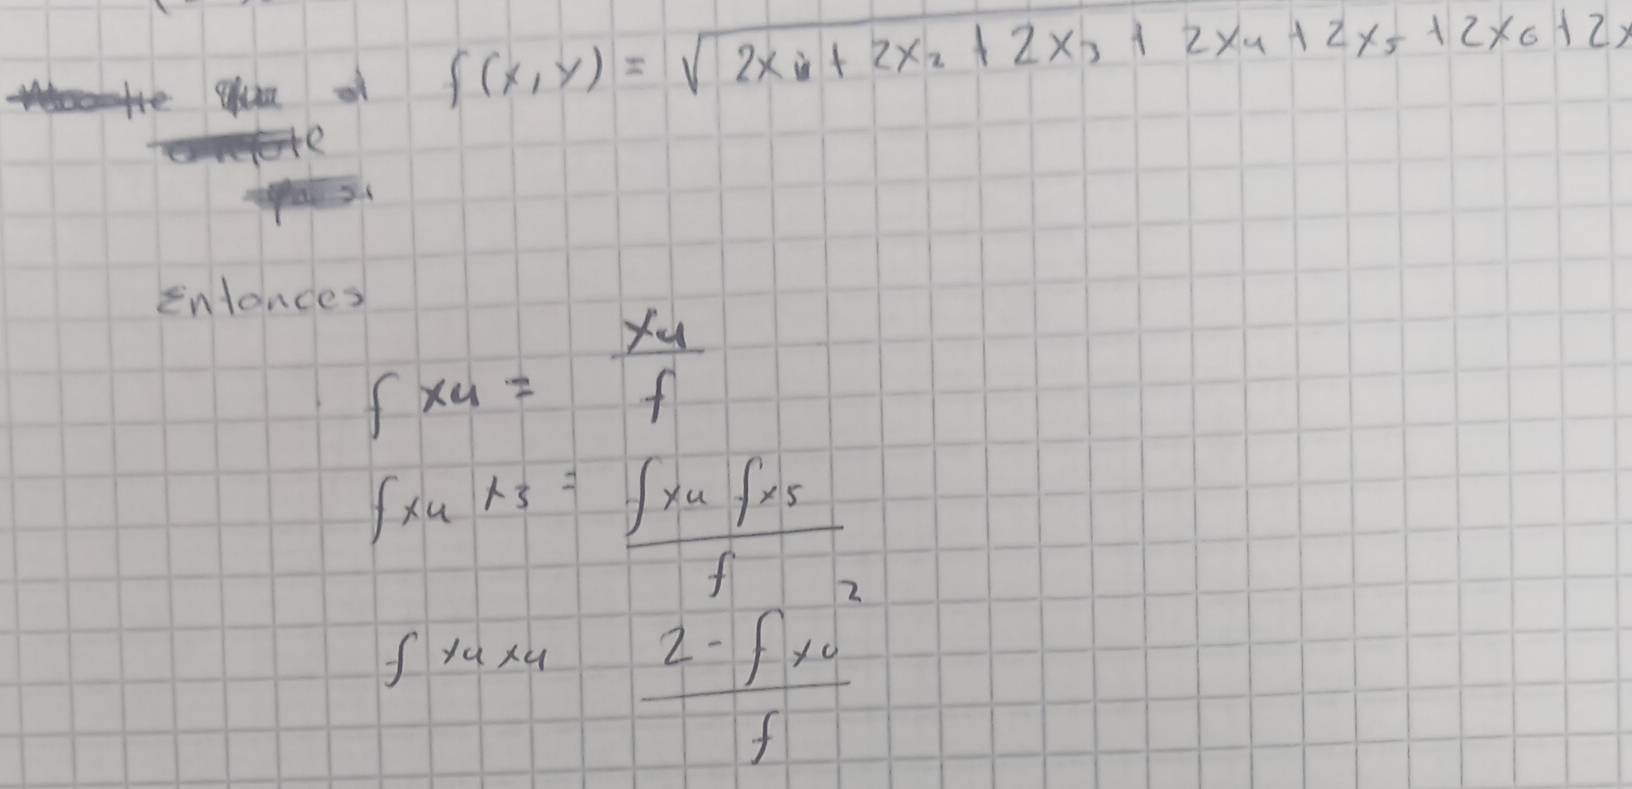 f(x,y) = √ 2x1 + 2x2 + 2x3 + 2x4 + 2x5 + 2x6 + 2x
Entonces
f x4 = x4 / f
f x4 x3 = f x4 f x5 / f
f x4 x4 2 - f x4² / f